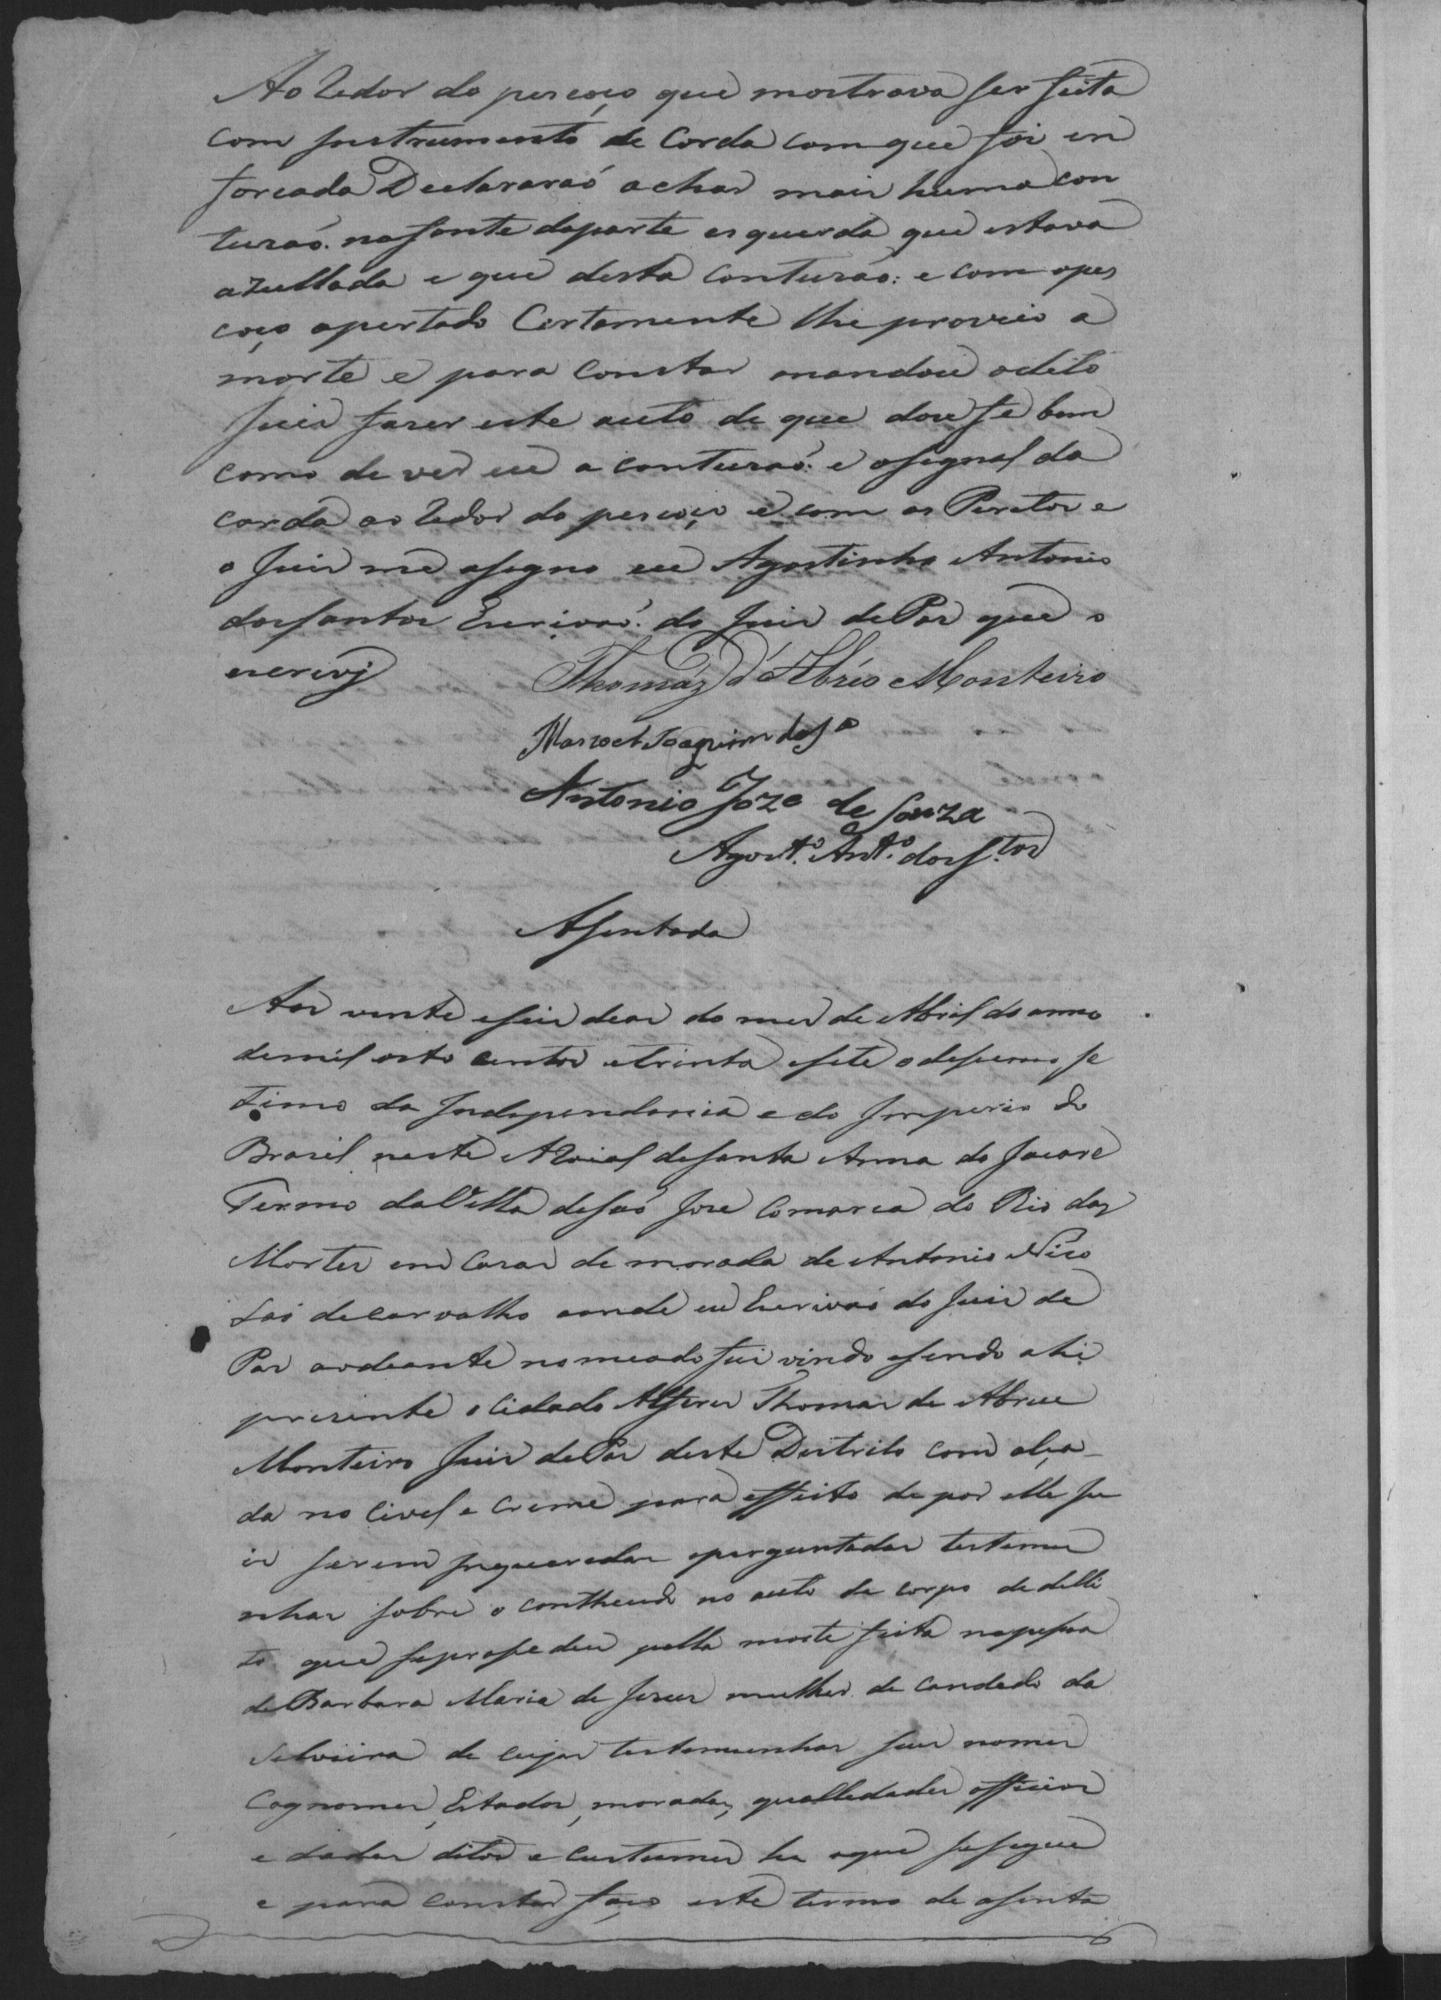 Ao Redor do pescoço que mostrava ser feita
com instrumento de Corda com que foi en
forcada Declararaó achar mais huma con
tuzaó. na fonte da parte esquerda que estava
azullada e que desta contuzaó: e com o pes
coço apertado Certamente lhe proveio a
morte e para constar mandou o dito
Juis fazer este auto de que dou fé bem
como de ver eu a contuzaó: e o signal da
corda ao Redor do pescoço e com os Peritos e
o Juis me asigno eu Agostinho Antonio
dos Santos Escrivaó. do Juis de Pas que o
escrevy
Thomáz d'Abréo Monteiro
Manoel Joaquim da Sª
Antonio Joze de Souza
Agost.º Ant.º dos S.tos
Asentada
Aos vinte e seis deas do mes de Abril do anno
de mil oito centos e trinta e sete o desimo se
timo da Independencia e do Imperio do
Brasil neste ARaial de Santa Anna do Jacaré
Termo da Villa de Saó Jose Comarca do Rio das
Mortes em Casas de morada de Antonio Nico
laó de Carvalho aonde eu Escrivaó do Juis de
Pas aodeante nomeado fui vindo e sendo ahi
presente o Cidadaó Alferes Thomas de Abreu
Monteiro Juis de Pas deste Destrito com alça-
da no Civel e Crime para effeito de por elle Ju
is serem inqueredas e perguntadas testemu
nhas sobre o contheudo no auto de corpo de delli
to que se prosedeu pella morte feita na pesoa
de Barbara Maria de Jesus mulher de Candedo da
Selveira de cujas testemunhas seus nomes
Cognomes, Estados, moradas, quallidades officios
e dadas ditos e custumes he o que se segue
e para constar faço este termo de asenta